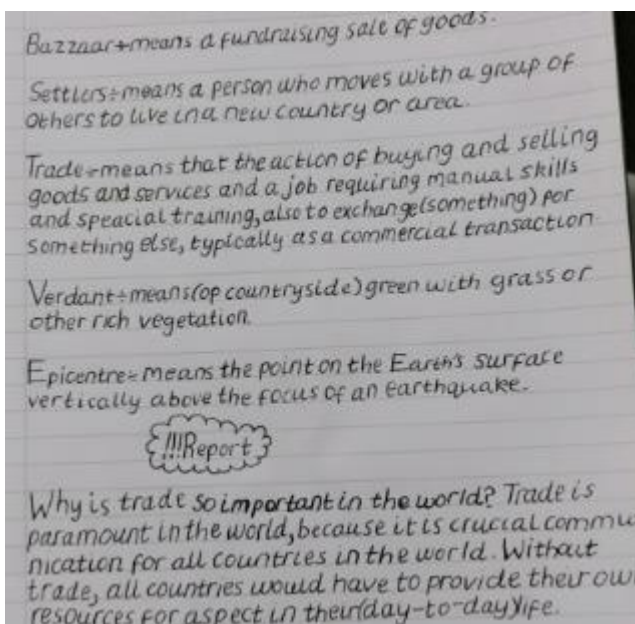 Bazzaar÷means a fundraising sale of goods.
Settlers÷means a person who moves with a group of
others to live in a new country or area.
Trade÷means that the action of buying and selling
goods and services and a job requiring manual skills
and speacial training, also to exchange (something) for
something else, typically as a commercial transaction
Verdant÷means (of countryside) green with grass or
other rich vegetation.
Epicentre÷means the point on the Earth's surface
vertically above the focus of an earthquake.
!!!Report
Why is trade so important in the world? Trade is
paramount in the world, because it is crucial commu
nication for all countries in the world. Without
trade, all countries would have to provide their ow
resources for aspect in their (day-to-day) life.